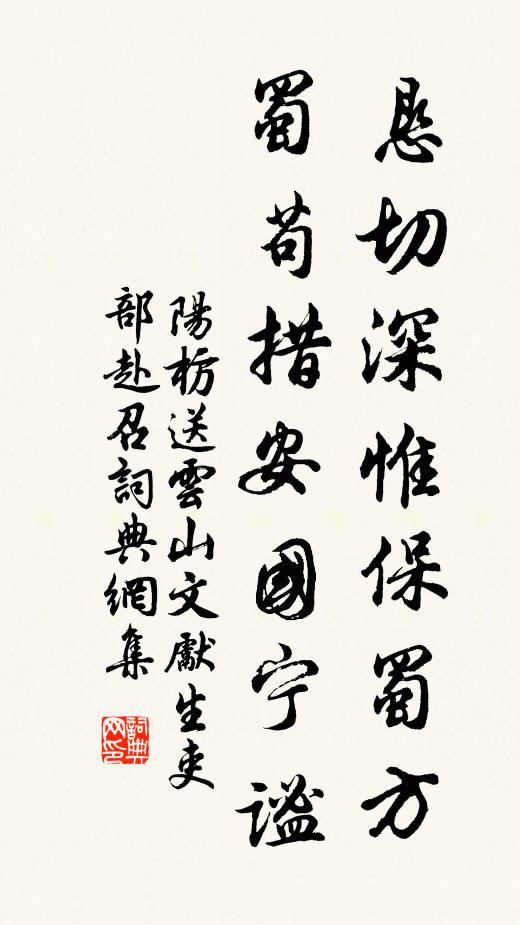 恳切深惟保蜀方
蜀苟措安國宁謐
陽枋送雲山文獻生吏
部赴召詞典網集
詞典网印